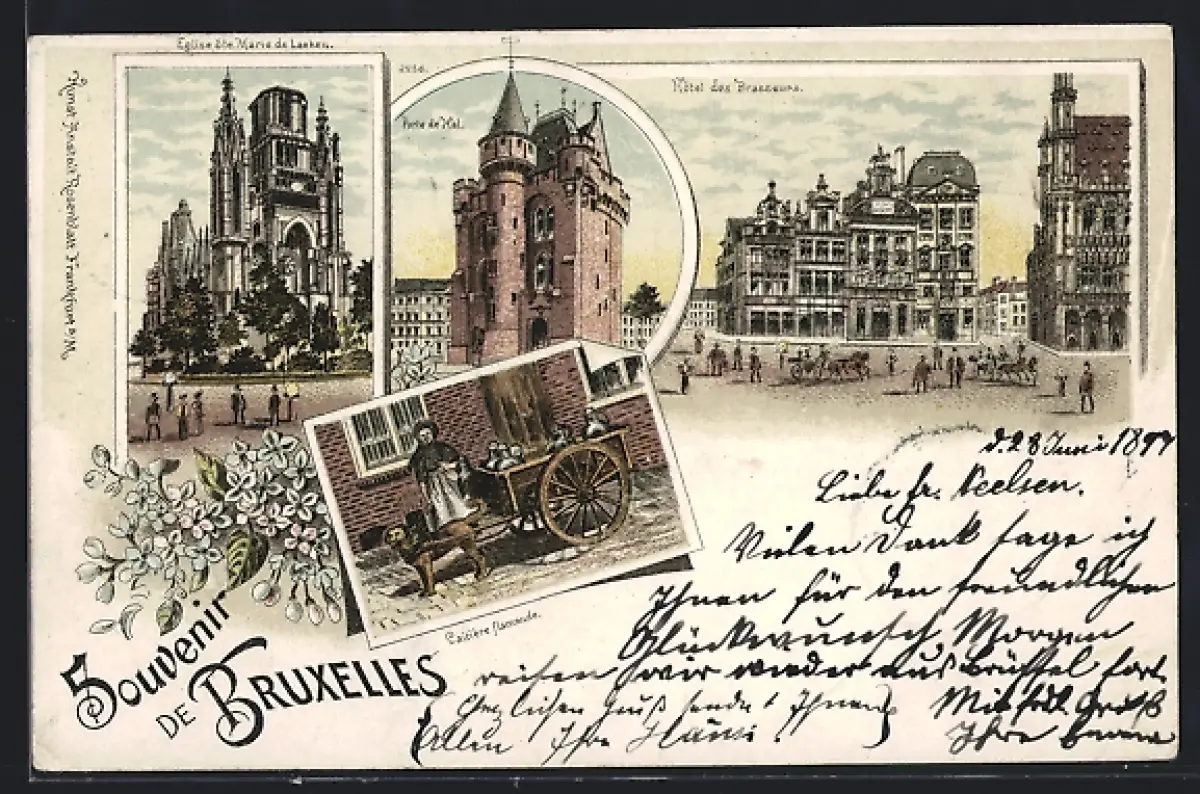 Eglise Ste. Marie de Laeken.
Kunst Anstalt Rosenblatt Frankfurt a/M.
2236.
Porte de Hal.
Hôtel des Brasseurs.
Laitière flamande.
Souvenir
DE BRUXELLES
d. 28 Juni 1897
Liebe Fr. Neelsen.
Vielen Dank sage ich
Ihnen für den freundlichen
Glückwunsch Morgen
reisen wir wieder aus Brüssel fort.
Mit frdl. Gruß
Ihre
(Herzlichen Gruß sendet Ihnen
Allen Ihre Hansi.)